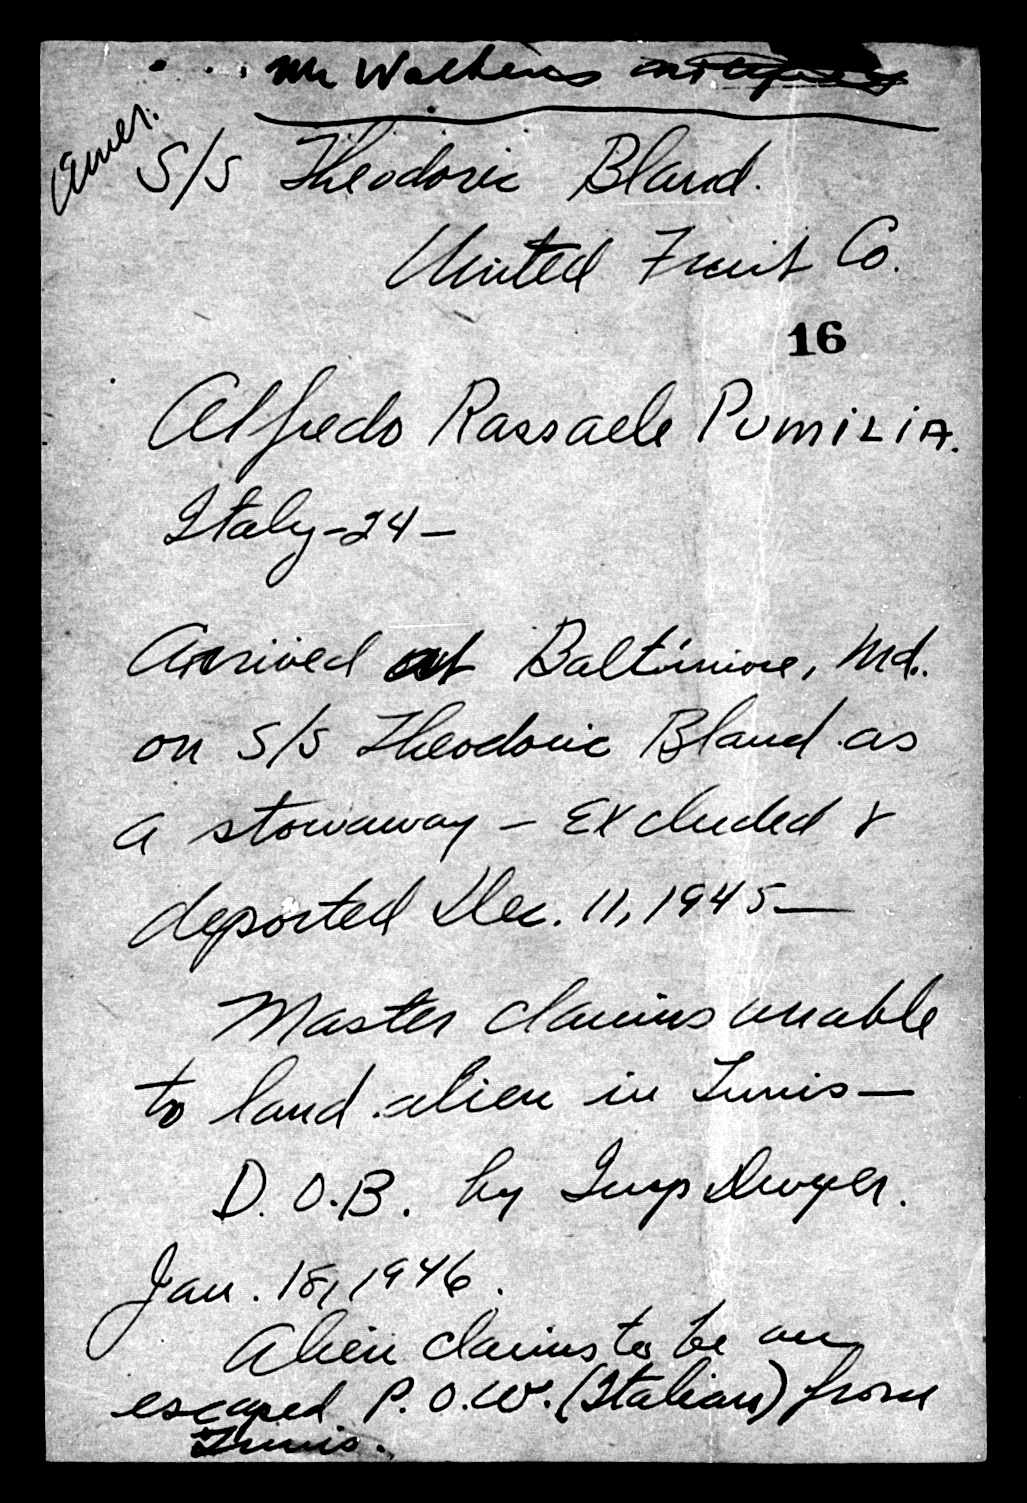 Mr Watkins notified
Amer.
S/S Theodoric Bland.
United Fruit Co.
16
Alfredo Rassaele PUMILIA.
Italy-24-
Arrived at Baltimore, Md.
on S/S Theodoric Bland as
a stowaway - Excluded &
deported Dec. 11, 1945-
Master claims unable
to land alien in Tunis-
D.O.B. by Insp Dwyer.
Jan. 18, 1946.
Alien claims to be an
escaped P.O.W. (Italian) from
Tunis.